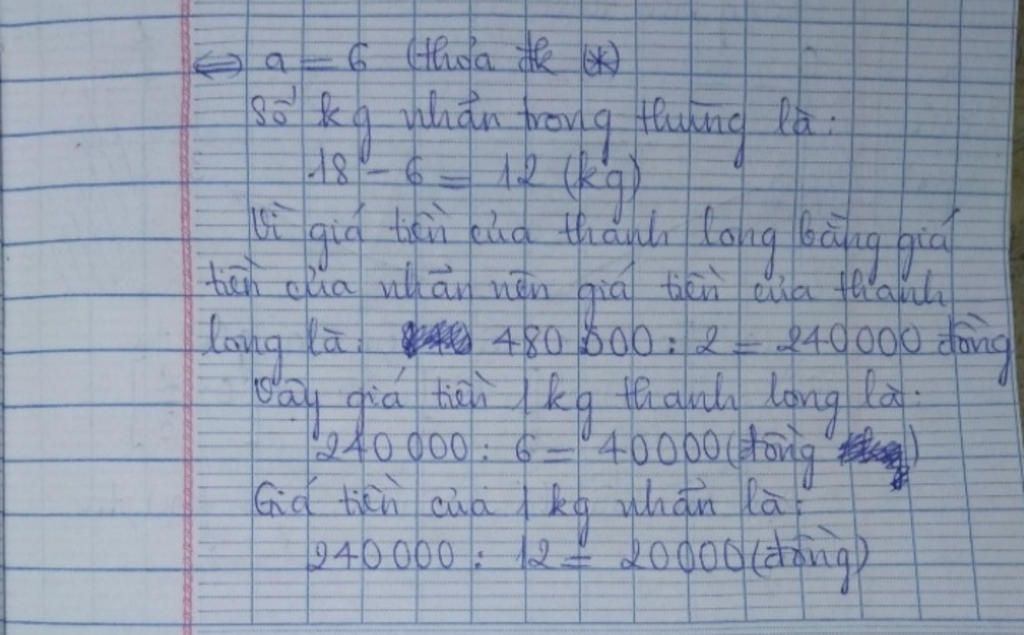 ⇔ a = 6 (thỏa đk (*)
Số kg nhãn trong thùng là:
18 - 6 = 12 (kg)
Vì giá tiền của thanh long bằng giá
tiền của nhãn nên giá tiền của thanh
long là: 480 000 : 2 = 240000 đồng
Vậy giá tiền 1 kg thanh long là:
240 000 : 6 = 40000 (đồng)
Giá tiền của 1 kg nhãn là:
240000 : 12 = 20000 (đồng)